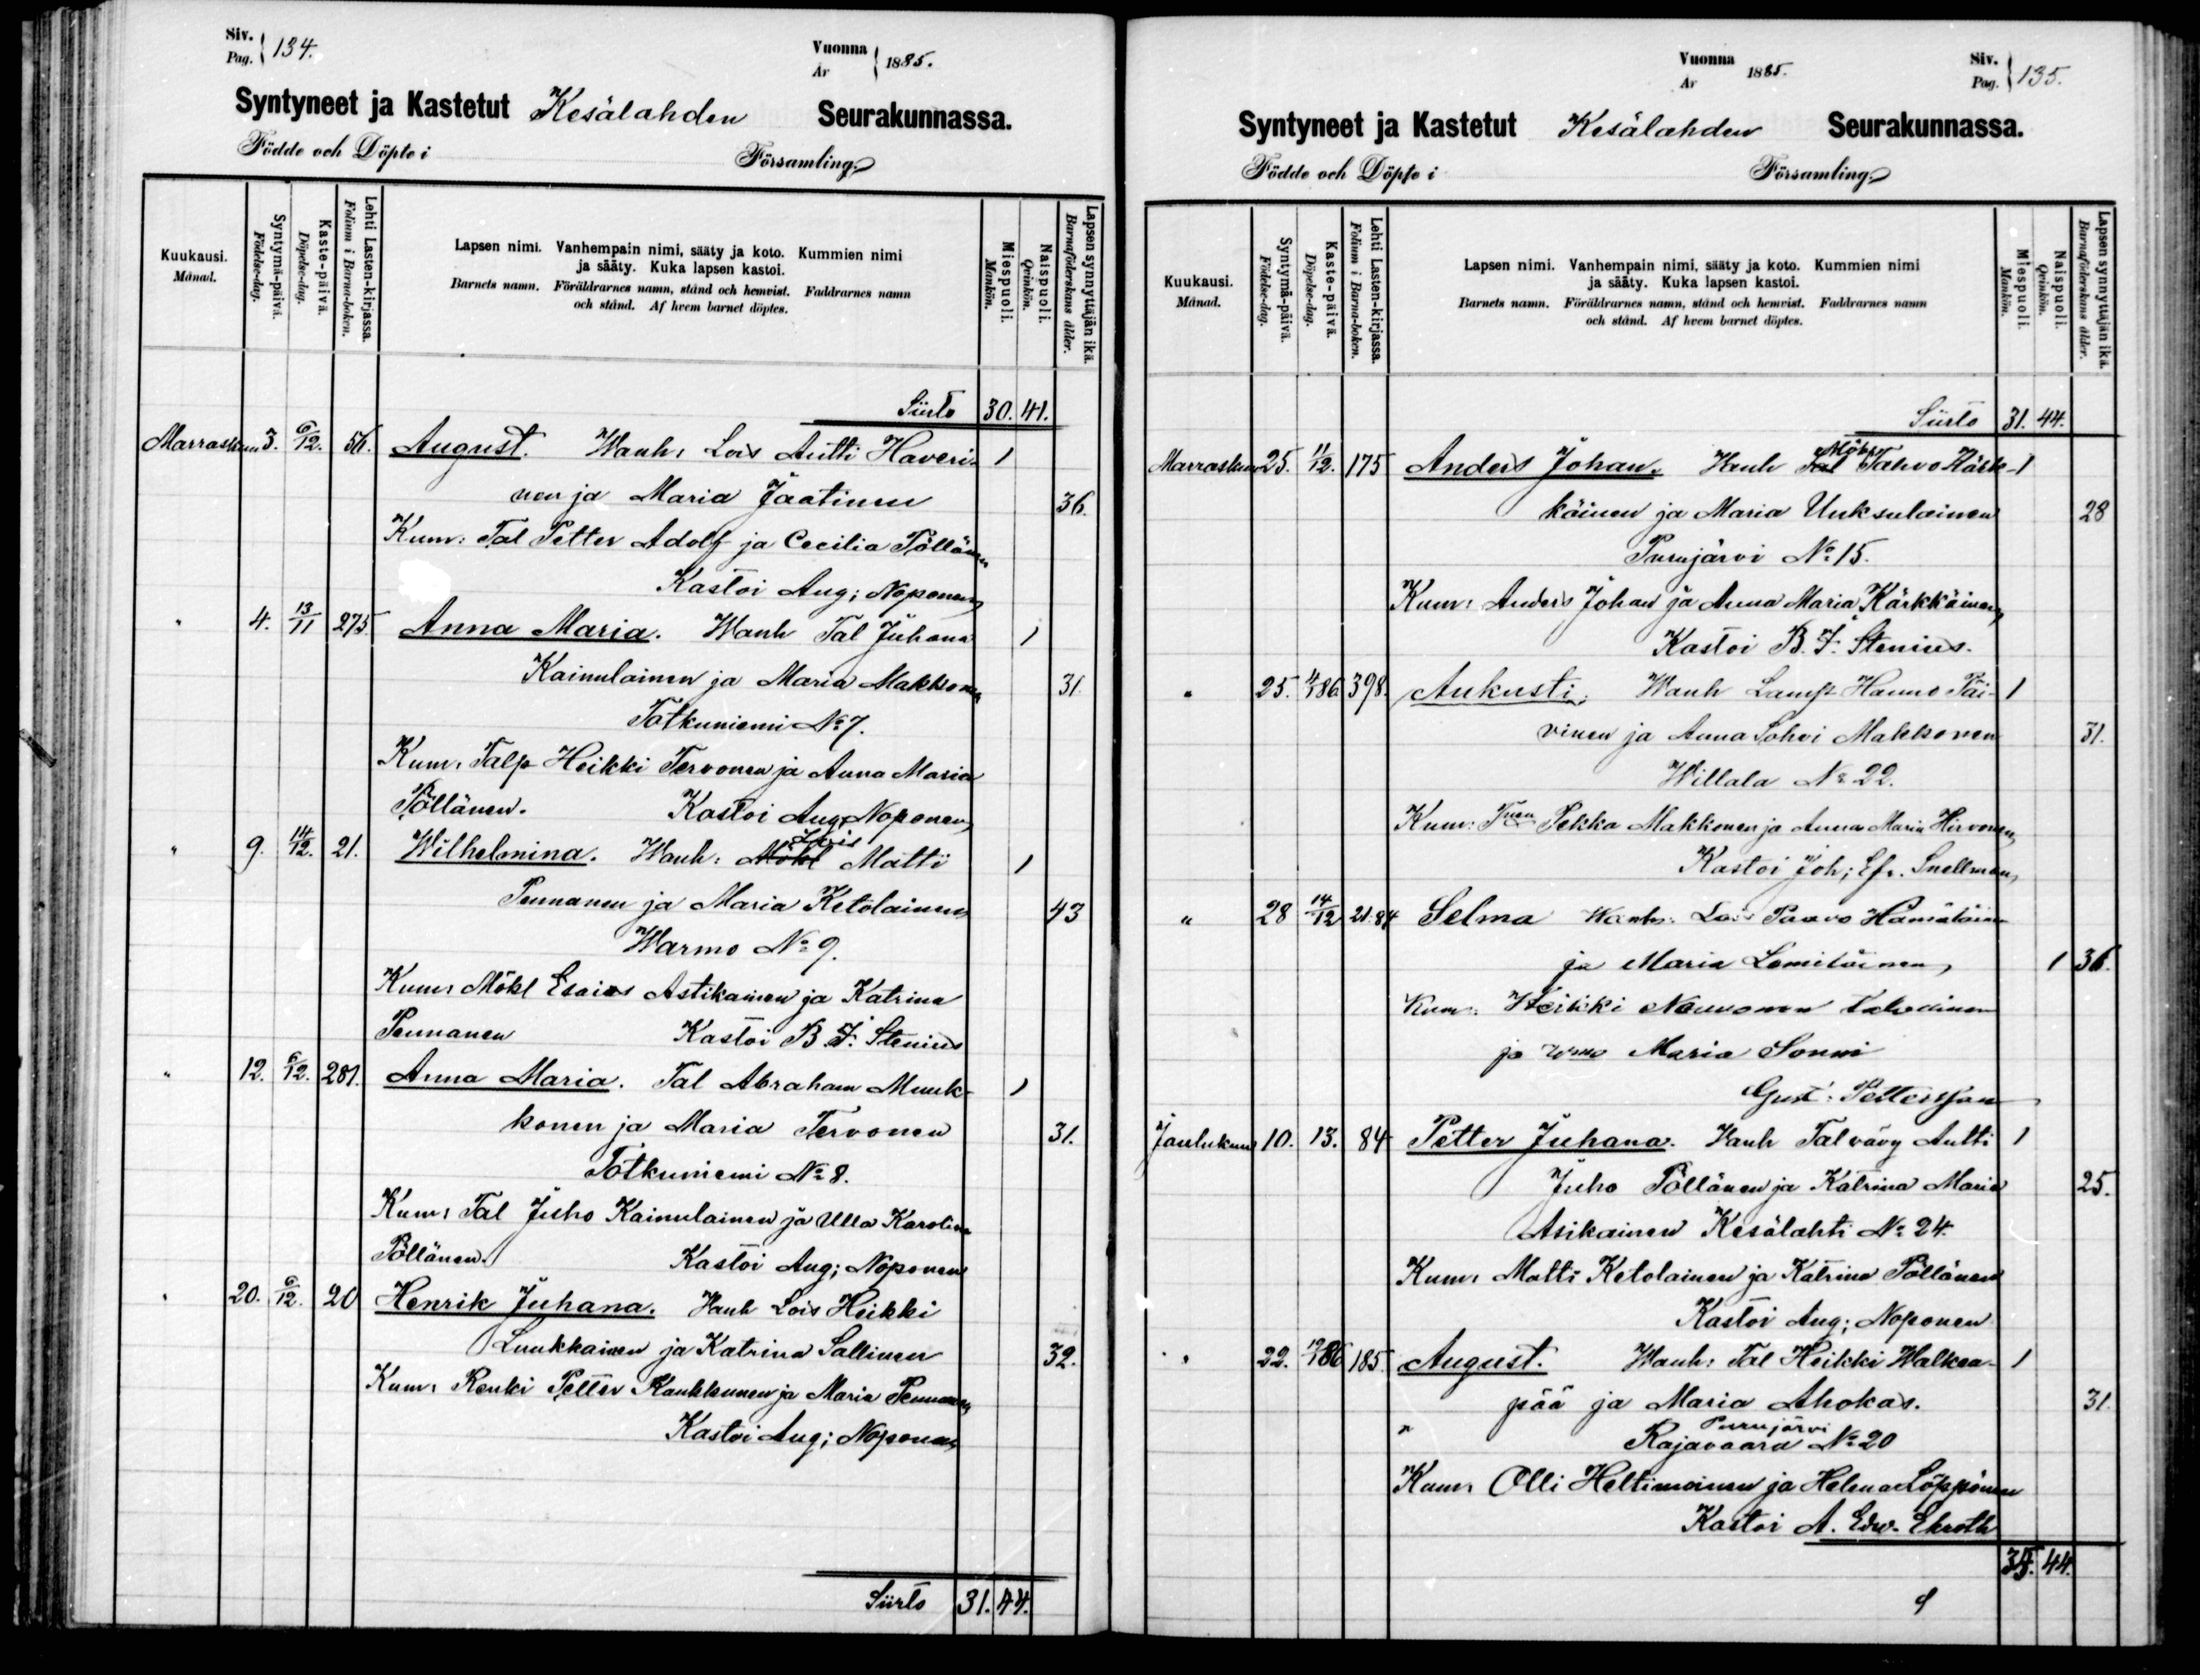 Siv.
Pag. 134.
Vuonna
År 1885.
Syntyneet ja Kastetut Kesälahden Seurakunnassa.
Födde och Döpte i Församling.
Kuukausi.
Månad.
Syntymä-päivä.
Födelse-dag.
Kaste-päivä.
Döpelse-dag.
Lehti Lasten-kirjassa.
Folium i Barna-boken.
Lapsen nimi. Vanhempain nimi, sääty ja koto. Kummien nimi
ja sääty. Kuka lapsen kastoi.
Barnets namn. Föräldrarnes namn, stånd och hemvist. Faddrarnes namn
och stånd. Af hvem barnet döptes.
Miespuoli.
Mankön.
Naispuoli.
Qvinkön.
Lapsen synnyttäjän ikä.
Barnaföderskans ålder.
Siirto 30. 41.
Marraskuu 3. 6/12. 56. August. Wanh: Lois Antti Haveri- 1
nen ja Maria Jaatinen 36.
Kum: Tal Petter Adolf ja Cecilia Pöllänen
Kastoi Aug; Noponen
" 4. 13/11 275. Anna Maria. Wanh Tal Juhana 1
Kainulainen ja Maria Makkonen 31.
Totkuniemi No 7.
Kum: Talp Heikki Tervonen ja Anna Maria
Pöllänen. Kastoi Aug; Noponen
" 9. 14/12. 21. Wilhelmina. Wanh: Mökl Lois Matti 1
Pennanen ja Maria Ketolainen 43
Warmo No 9.
Kum: Mökl Esaias Astikainen ja Katrina
Pennanen Kastoi B. F. Stenius
" 12. 6/12. 281. Anna Maria. Tal Abraham Muuk- 1
konen ja Maria Tervonen 31.
Totkuniemi No 8.
Kum: Tal Juho Kainulainen ja Ulla Karolina
Pöllänen. Kastoi Aug; Noponen
" 20. 6/12. 20 Henrik Juhana. Wanh Lois Heikki
Luukkainen ja Katrina Sallinen 32.
Kum: Renki Petter Kaukkunen ja Maria Pennanen
Kastoi Aug; Noponen
Siirto 31. 44.
Vuonna
År 1885.
Siv.
Pag. 135.
Syntyneet ja Kastetut Kesälahden Seurakunnassa.
Födde och Döpte i Församling.
Kuukausi.
Månad.
Syntymä-päivä.
Födelse-dag.
Kaste-päivä.
Döpelse-dag.
Lehti Lasten-kirjassa.
Folium i Barna-boken.
Lapsen nimi. Vanhempain nimi, sääty ja koto. Kummien nimi
ja sääty. Kuka lapsen kastoi.
Barnets namn. Föräldrarnes namn, stånd och hemvist. Faddrarnes namn
och stånd. Af hvem barnet döptes.
Miespuoli.
Mankön.
Naispuoli.
Qvinkön.
Lapsen synnyttäjän ikä.
Barnaföderskans ålder.
Siirto 31. 44.
Marraskuu 25. 11/12. 175 Anders Johan. Wanh Tal Mökl Tahvo Kärk- 1
käinen ja Maria Uuksulainen 28
Purujärvi No 15.
Kum: Anders Johan ja Anna Maria Kärkkäinen,
Kastoi B. F. Stenius.
" 25. 4/1 86 398. Aukusti. Wanh Lamp Hannu Päi- 1
vinen ja Anna Sohvi Makkonen 31.
Willala No 22.
Kum: Pekka Makkonen ja Anna Maria Hirvonen,
Kastoi Joh; Efr. Snellman,
" 28 14/12 21.84 Selma Wanh: Lois Paavo Hämäläinen
ja Maria Lomiläinen, 1 36.
Kum: Heikki Nauvonen
ja Maria Sonni
Gust: Pettersson
Joulukuu 10. 13. 84 Petter Juhana. Wanh Tal vävy Antti 1
Juho Pöllänen ja Katrina Maria 25.
Asikainen Kesälahti No 24.
Kum: Matti Ketolainen ja Katrina Pöllänen
Kastoi Aug; Noponen
" 22. 185 August. Wanh: Tal Heikki Walkea- 1
pää ja Maria Ahokas. 31
Purujärvi
Rajavaara No 20
Kum: Olli Heltimoinen ja Helena Löppönen
Kastoi A. Edw. Ekroth
35. 44.